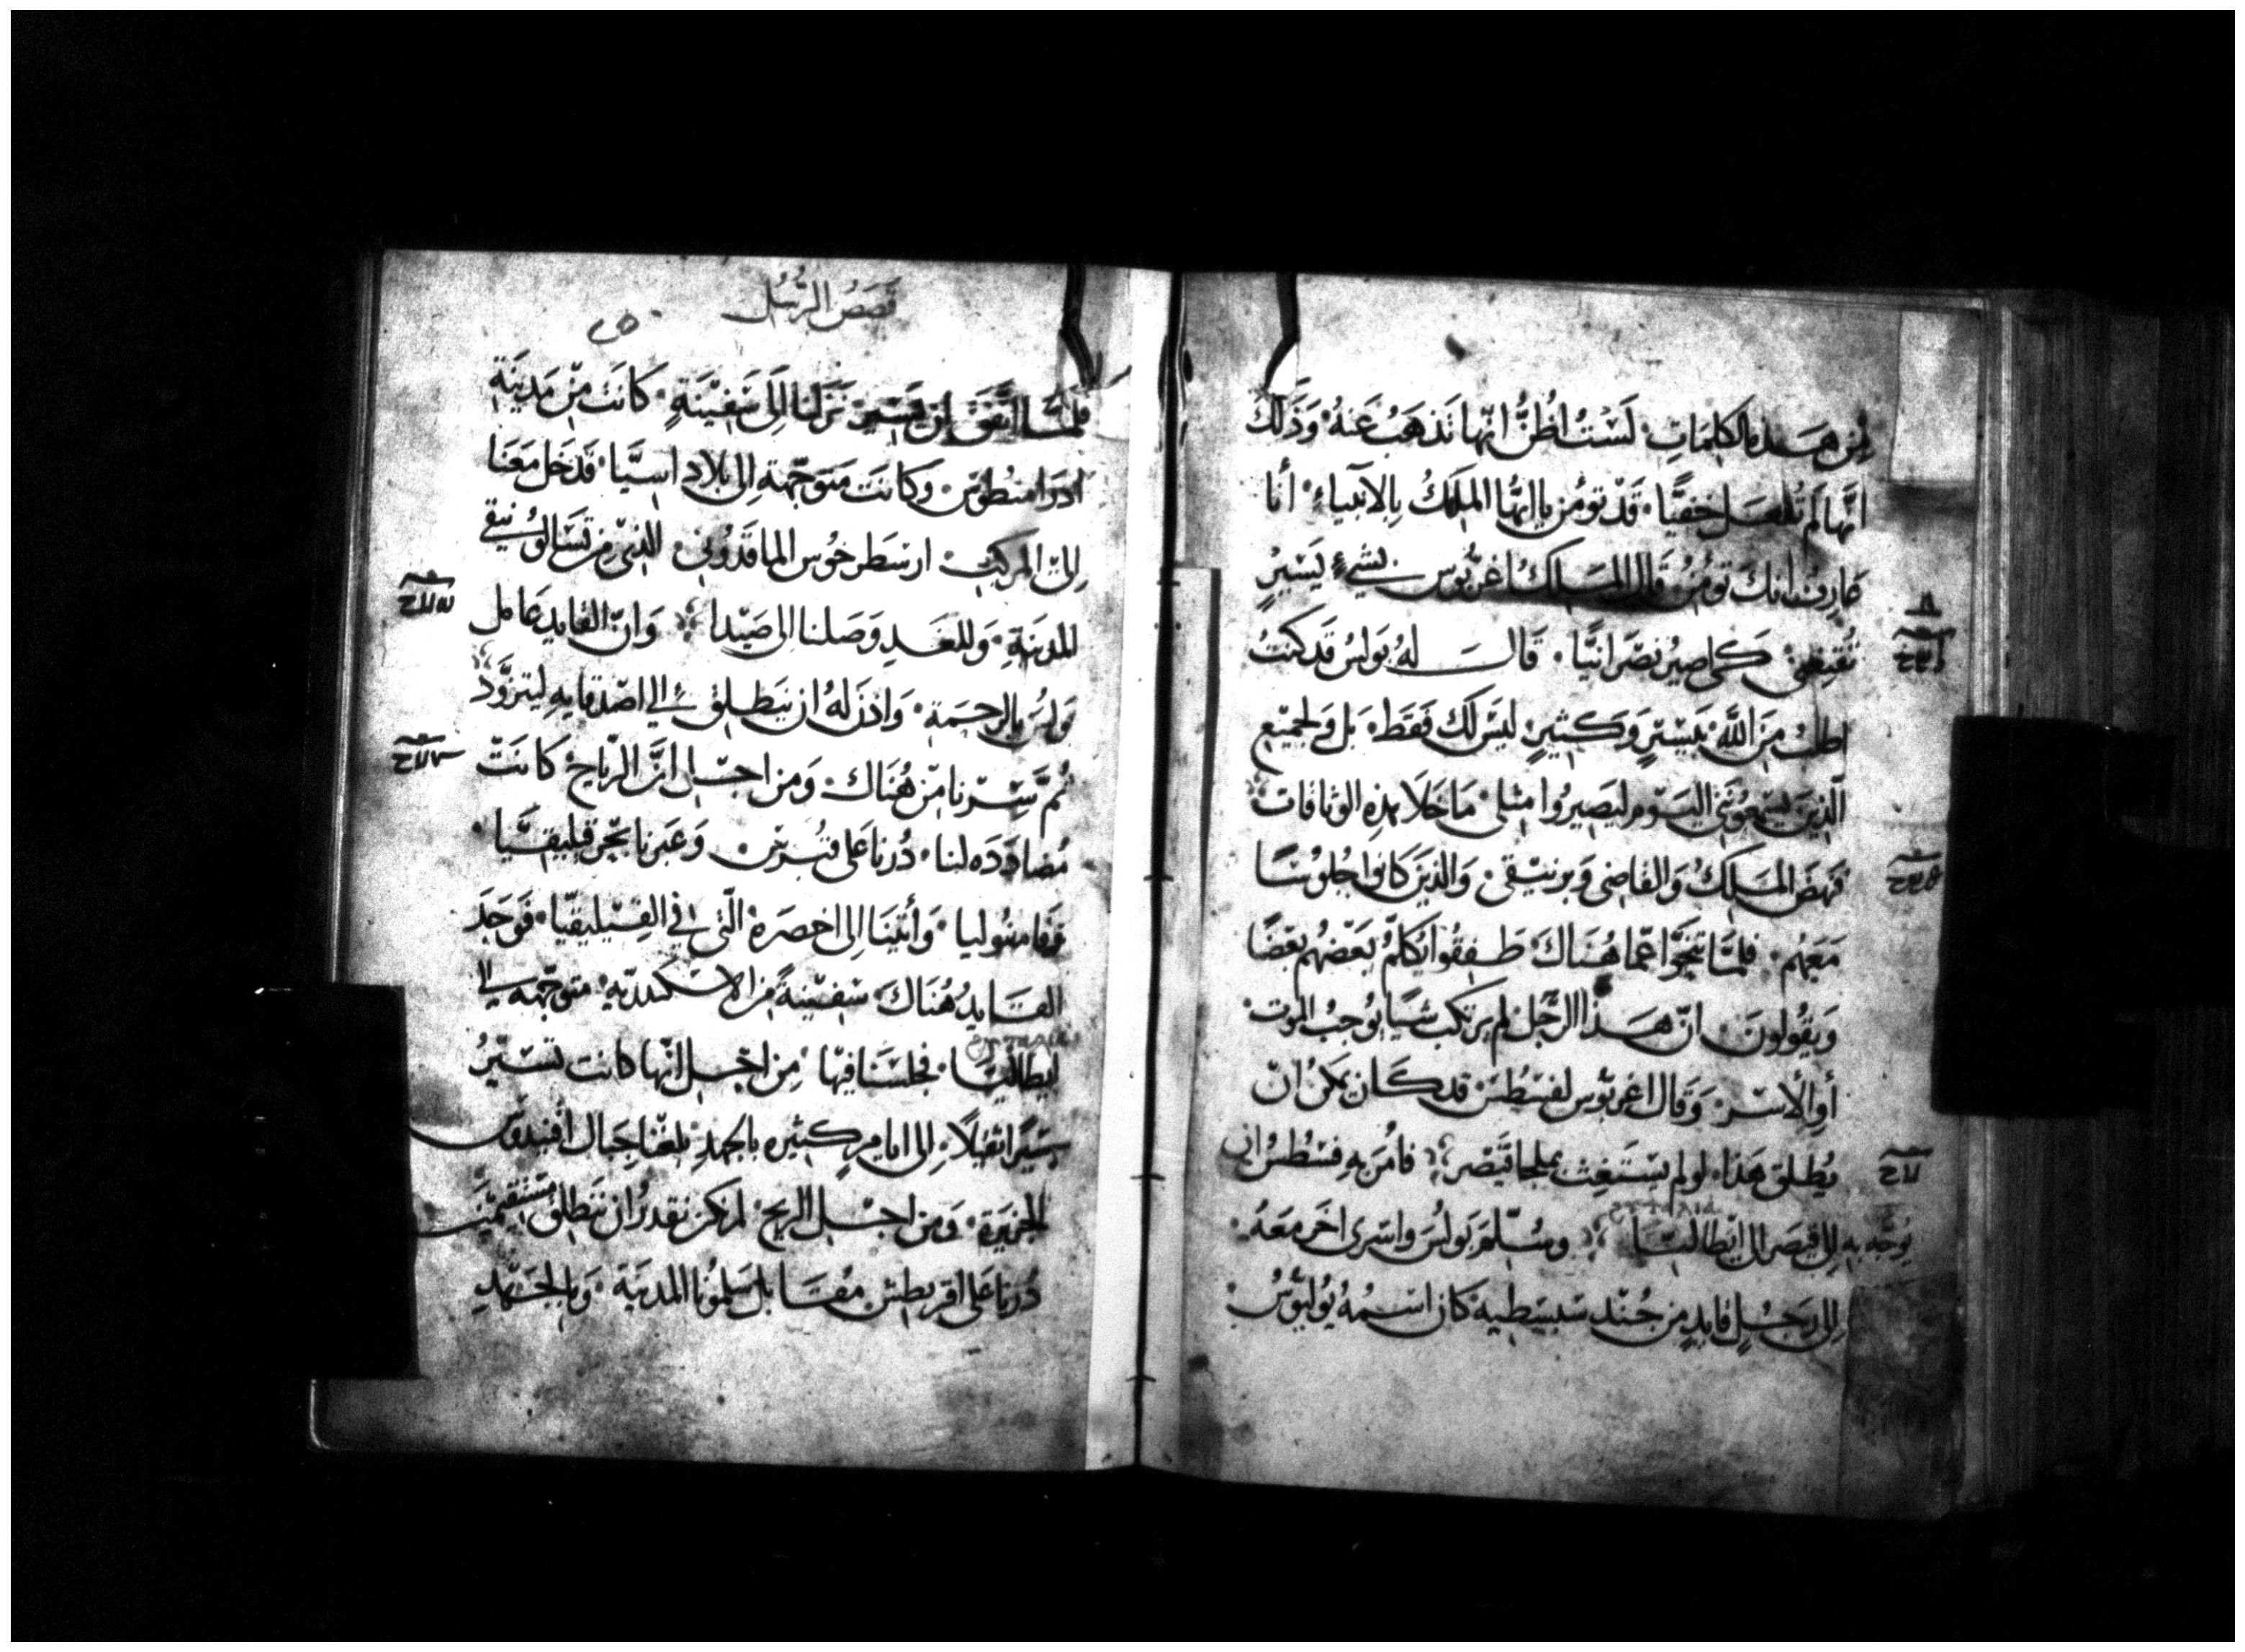 مِن هَذه الكلِمَاتِ لَسْتُ اظُنُّ انّها تَذهَبُ عَنهُ وَذلك
انَّها لَم تُفعَل خَفيًّا قَدْ تومُن يا ايُّها الملكُ بِالانبياء أنا
عَارِفُ انكَ تؤمُن قال الملكُ اغربّوس بشيءٍ يَسيرٍ
تُقنِعُني كَى اصيرُ نصْرَانيًّا قَال لهُ بَولسُ قَد كنتُ
اطلبُ مِنَ اللَّه بيَسيْرٍ وَكثيرٍ ليْسَ لَك فَقَط بَل وَلجميْع
الّذِينَ يسمعُونَني اليَوْم ليَصيرُوا مثلى مَا خَلَا هذِهِ الوثاقات
فنهضَ الملكُ وَالقاضى وَبرنيْقى وَالذينَ كانوا جُلوْسًا
مَعَهُم فلمَّا تنَحَّوا عمّا هُنَاكَ طَفِقُوا يُكلّمُ بَعْضُهم بعْضًا
وَيقُولونَ انّ هَذا الرَّجُل لم يَرتكب شيًا يوُجبُ الموت
أوِ الأسْرَ وَقال اغربّوس لفسطُسَ قد كَان يمكنُ انّ
يُطلق هَذا لو لم يسْتَغِث بملجا قَيْصر فامَر بهِ فسْطُسُ ان
يُوجّه به الى قيصر الى ايْطاليَا وسُلّم بَولُسَ واسرى اخرَ معَهُ
الى رَجُلٍ قايدٍ من جُند سَبسطيه كان اسْمُهُ يُوليُوسُ
قَصَصُ الرُسُل
فلمّا اتّفقَ ان نَسيرَ نزَلنا الَى سَفيْنَةٍ كانَت مِنْ مَدينَة
ادرَامنطوس وَكانَت متوَجّهَة الى بلاد اسيَّا فَدَخل مَعَنا
الىَ المركب ارسْطرخُوس الماقدُونى الذى من تَسَالوُنيقى
المدينَة وَللغَدِ وَصَلنا الى صَيْدا وَانّ القايد عَامل
بَولسَ بالرحمَة وَاذنَ لهُ ان ينطلق الى اصْدقايه ليتزوَّد
ثُمَّ سِرْنا مِنْ هُنَاك وَمن اجْل انَّ الرّياحَ كانَتْ
مُضادَدَه لنا دُرنا عَلى قبْرسَ وَعَبرنا بحْرَ قيليقيَّا
وَفامفوُليا وَأتينَا الى اخصَرَه الّتى في القيْليقيّا فوَجَدَ
القَايدُ هُنَاكَ سَفيْنةً من الاسكندريّه متوجّهه الى
ايطاليَا فجلسْنا فيْها مِن اجْل انّها كانت تسيْرُ
سَيْرًا ثقيْلاً الى ايامٍ كثيره بالجهدِ بلغنا جبال اقنيدوس
الجزيرَة وَمن اجْل الريح لم نكن نقدرُ ان ننطلق مستقيمين
دُرنا عَلى اقريطش مقابل سَلمونا المدينَة وَبالجَهْدِ